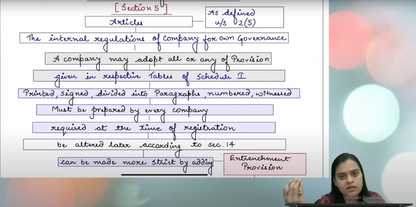 [Section 5]
Articles
As defined
u/s 2(5)
The internal regulations of Company for own Governance
A company may adopt all or any of Provision
given in respective Tables of Schedule I.
Printed, signed, divided into Paragraphs, numbered, witnessed
Must be prepared by every company
required at the time of registration
be altered later according to sec. 14
can be made more strict by adding
Entrenchment
Provision